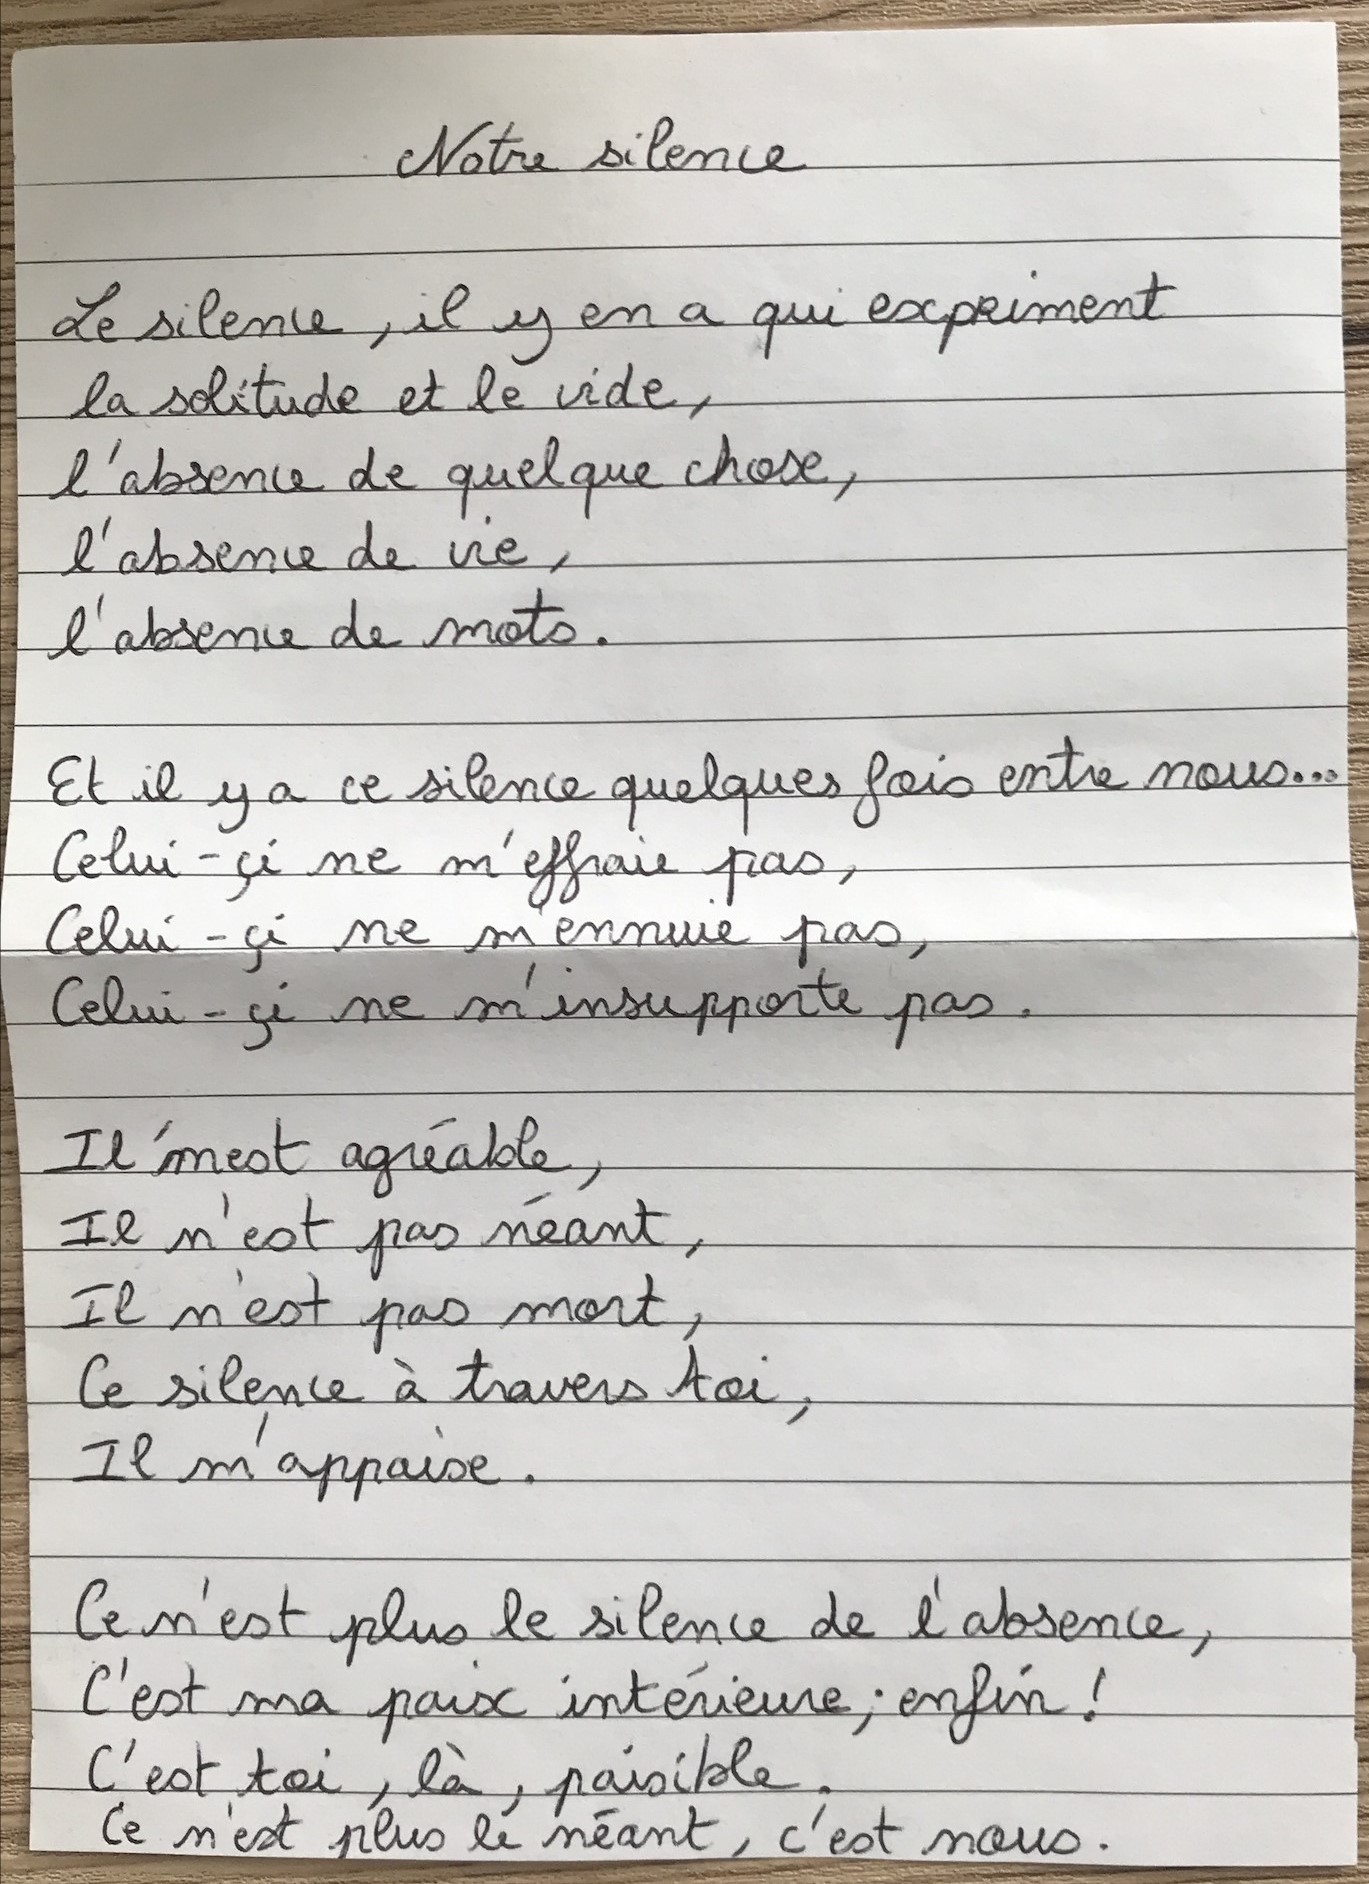 Notre silence
Le silence, il y en a qui expriment
la solitude et le vide,
l'absence de quelque chose,
l'absence de vie,
l'absence de mots.
Et il y a ce silence quelques fois entre nous...
Celui-çi ne m'effraie pas,
Celui-çi ne m'ennuie pas,
Celui-çi ne m'insupporte pas.
Il m'est agréable,
Il n'est pas néant,
Il n'est pas mort,
Ce silence à travers toi,
Il m'appaise.
Ce n'est plus le silence de l'absence,
C'est ma paix intérieure; enfin!
C'est toi, là, paisible.
Ce n'est plus le néant, c'est nous.